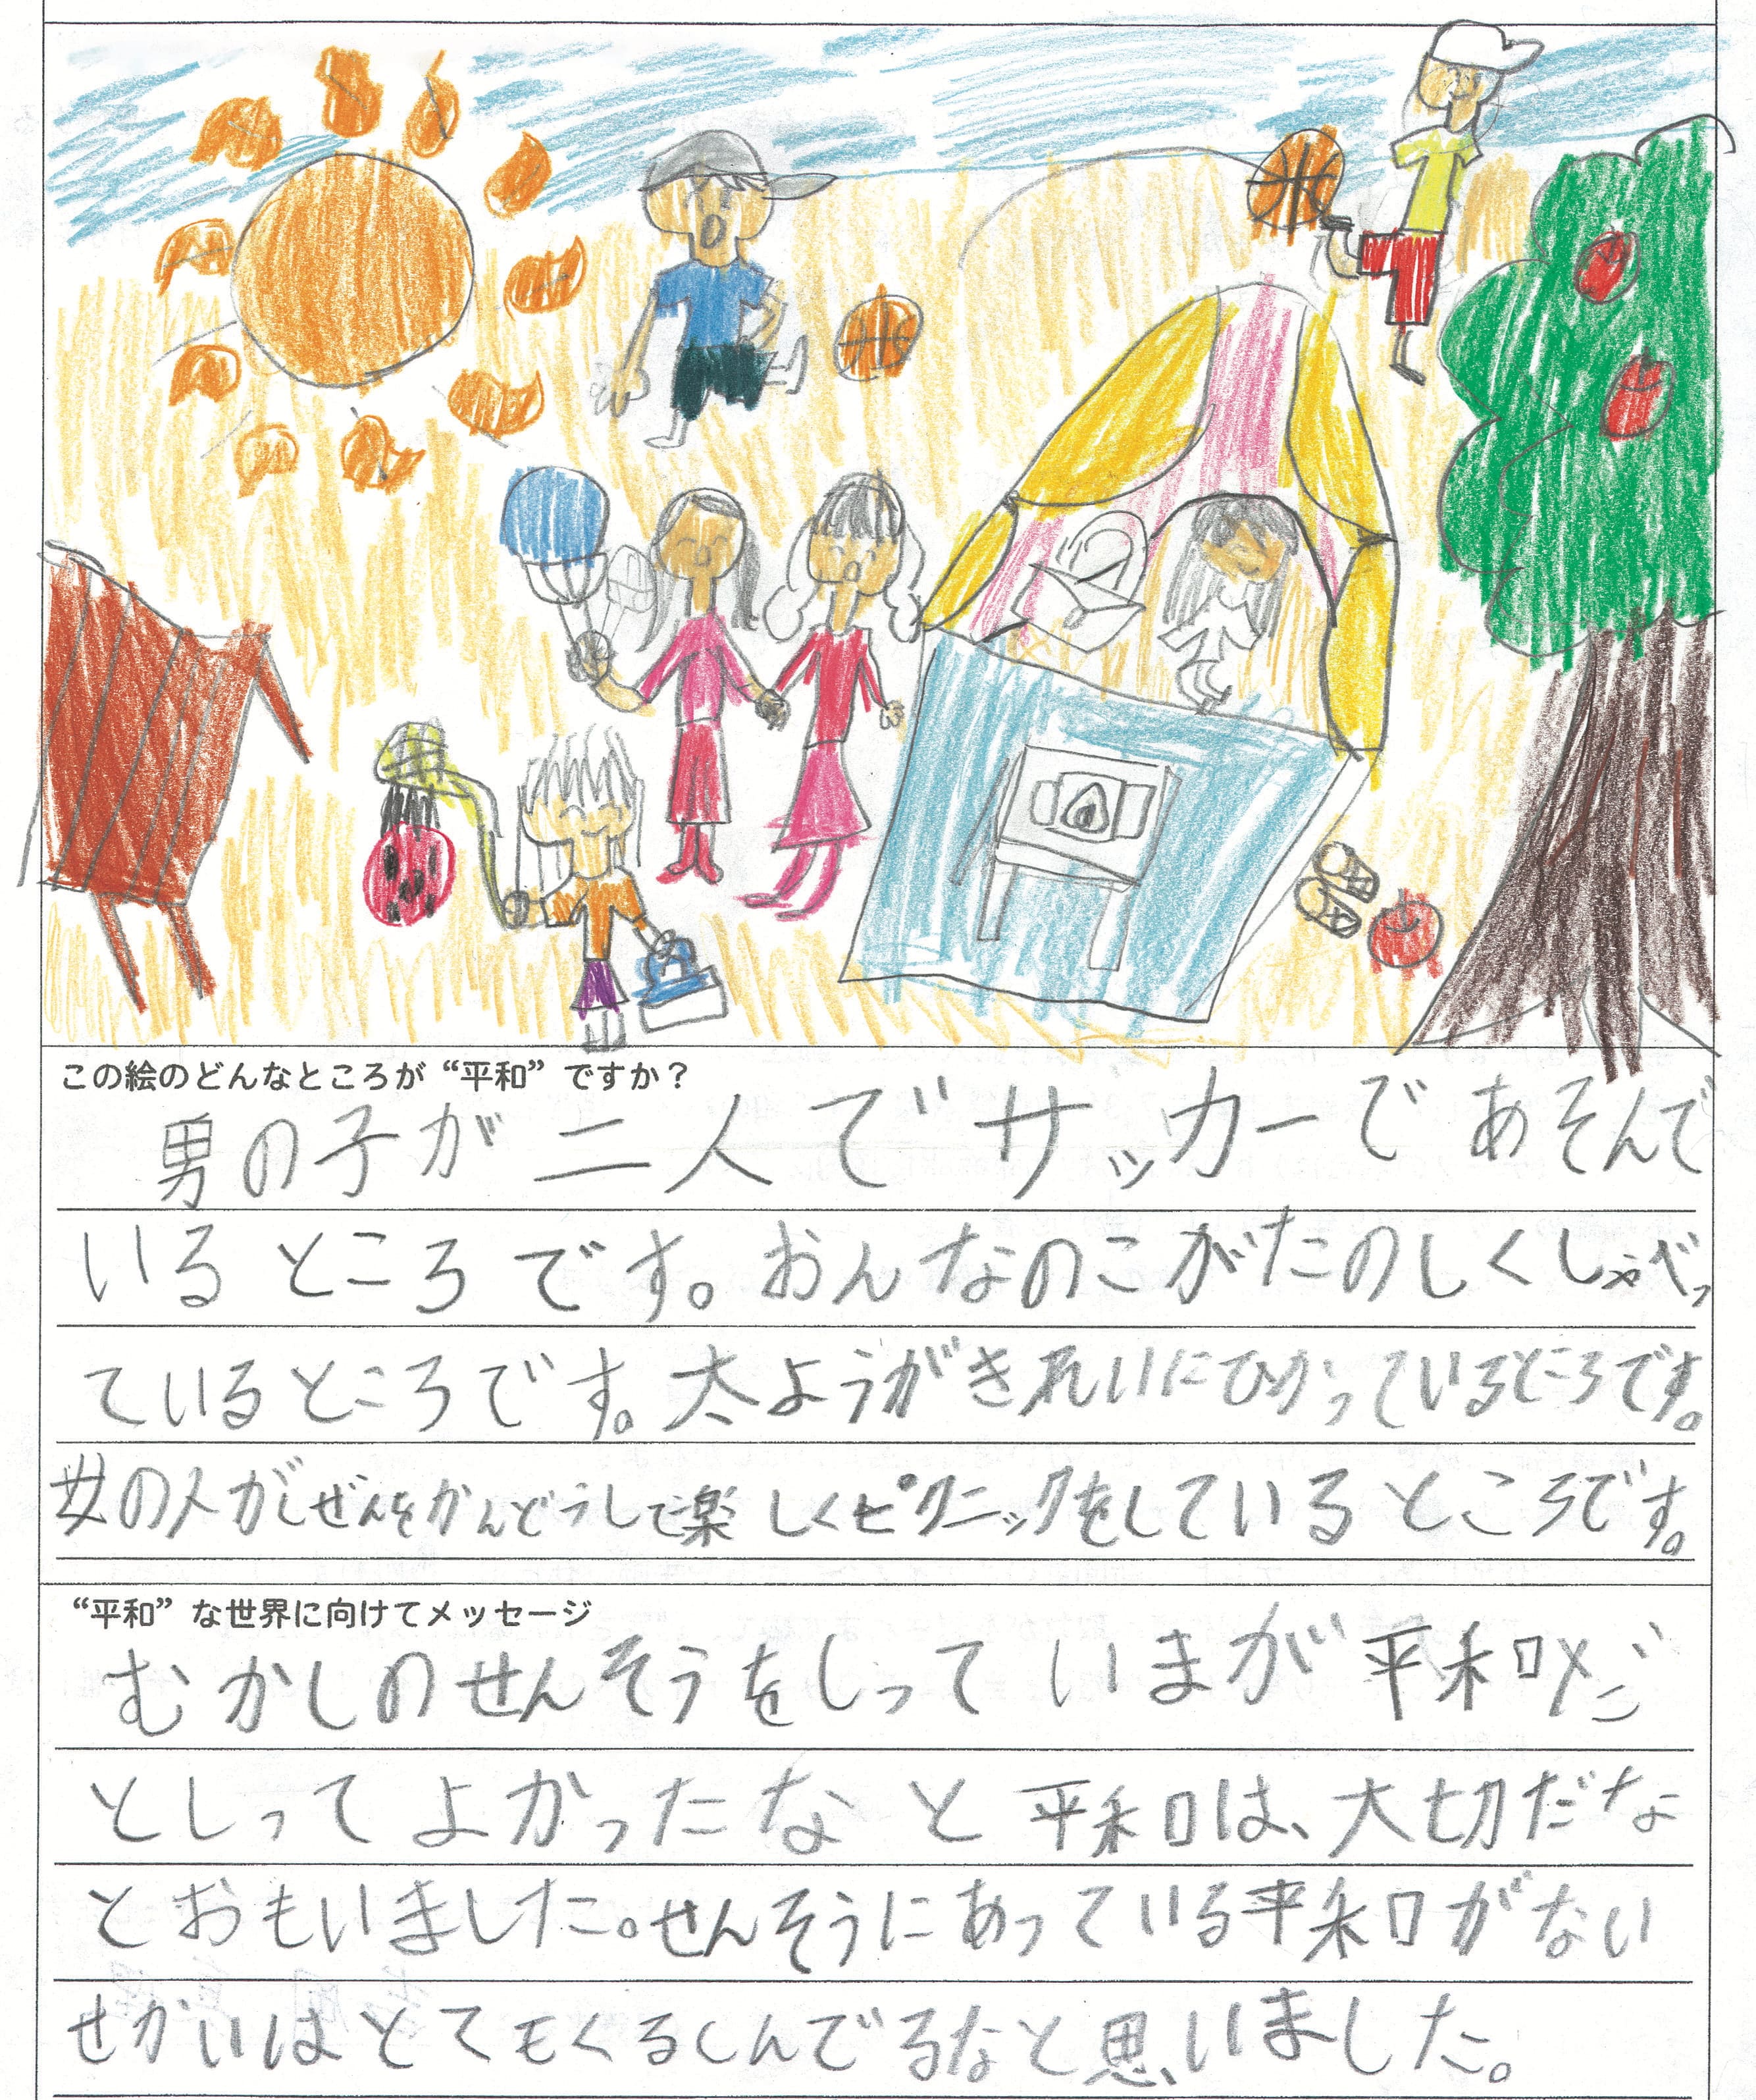 この絵のどんなところが“平和”ですか？
男の子が二人でサッカーであそんで
いるところです。おんなのこがたのしくしゃべっ
ているところです。太ようがきれいにひかっているところです。
女の人がしぜんをかんどうして楽しくピクニックをしているところです。
“平和”な世界に向けてメッセージ
むかしのせんそうをしっていまが平和だ
としってよかったなと平和は、大切だな
とおもいました。せんそうにあっている平和がない
せかいはとてもくるしんでるなと思いました。